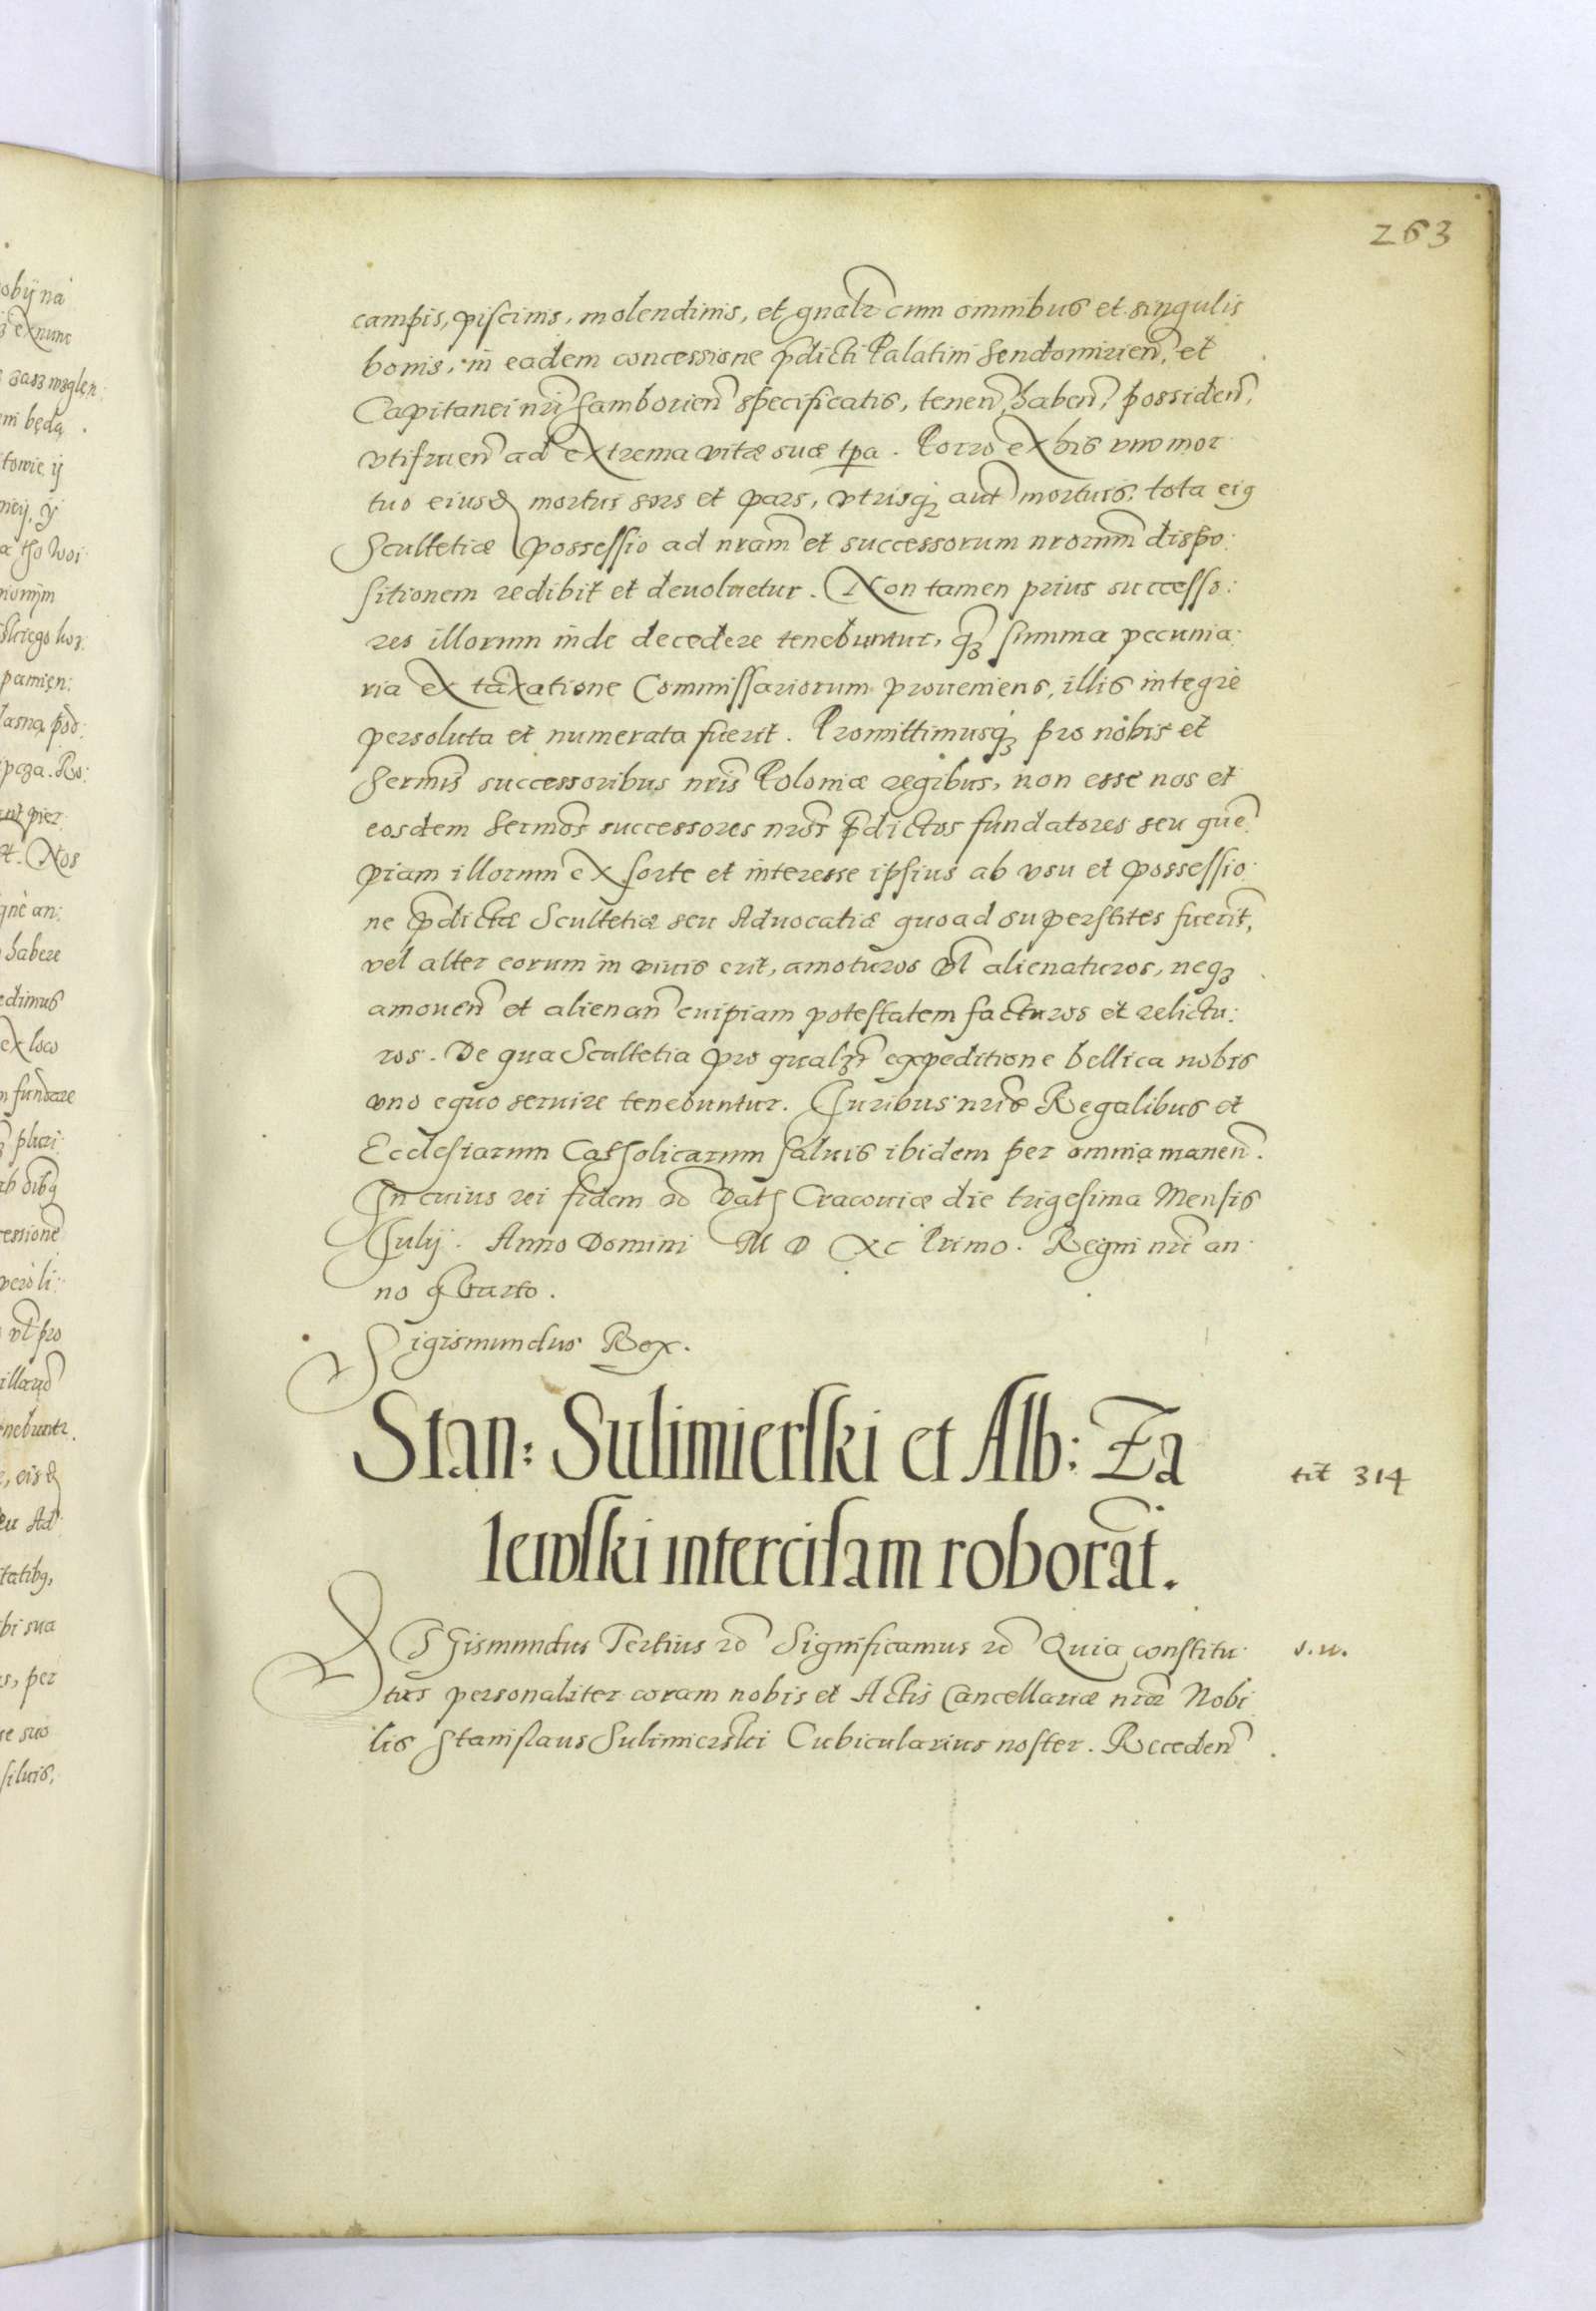 263
campis, piscinis, molendinis, et gnalr cum omnibus et singulis
bonis, in eadem concessione pdicti Palatini Sendomirien, et
Capitanei nri Samborien specificatis, tenen, haben, possiden,
vtifruen ad extrema vitæ suæ tpa. Porro ex his vno mor
tuo eiusd mortui sors et pars, vtrisq aut mortuis, tota eig
Scultetiæ possessio ad nram et successorum nrorum dispo:
sitionem redibit et deuoluetur. Non tamen prius successo:
res illorum inde decedere tenebuntur, qz summa pecunia:
ria ex taxatione Commissariorum proueniens, illis integrè
persoluta et numerata fuerit. Promittimusqz pro nobis et
Sermis successoribus nris Poloniæ regibus, non esse nos et
eosdem Sermos successores nros pdictos fundatores seu que
piam illorum ex sorte et interesse ipsius ab vsu et possessio
ne pdictæ Scultetiæ seu Aduocatiæ quoad superstites fuerit,
vel alter eorum in viuis erit, amoturos vl alienaturos, neqz
amouen et alienan cuipiam potestatem facturos et relictu:
ros. De qua Scultetia pro qualzt expeditione bellica nobis
vno equo seruire tenebuntur. Iuribus nris Regalibus et
Ecclesiarum Catholicarum saluis ibidem per omnia manen.
In cuius rei fidem rc Dat Cracouiæ die trigesima Mensis
Iulij. Anno Domini M D XC Primo. Regni nri an
no quarto.
Sigismundus Rex.
Stan: Sulimierski et Alb: Za
lewski intercisam roborat.
tit 314
Sigismundus Tertius rc Significamus rc Quia constitu
s. n.
tus personaliter coram nobis et Actis Cancellariæ nræ Nobi
lis Stanislaus Sulimierski Cubicularius noster. Receden